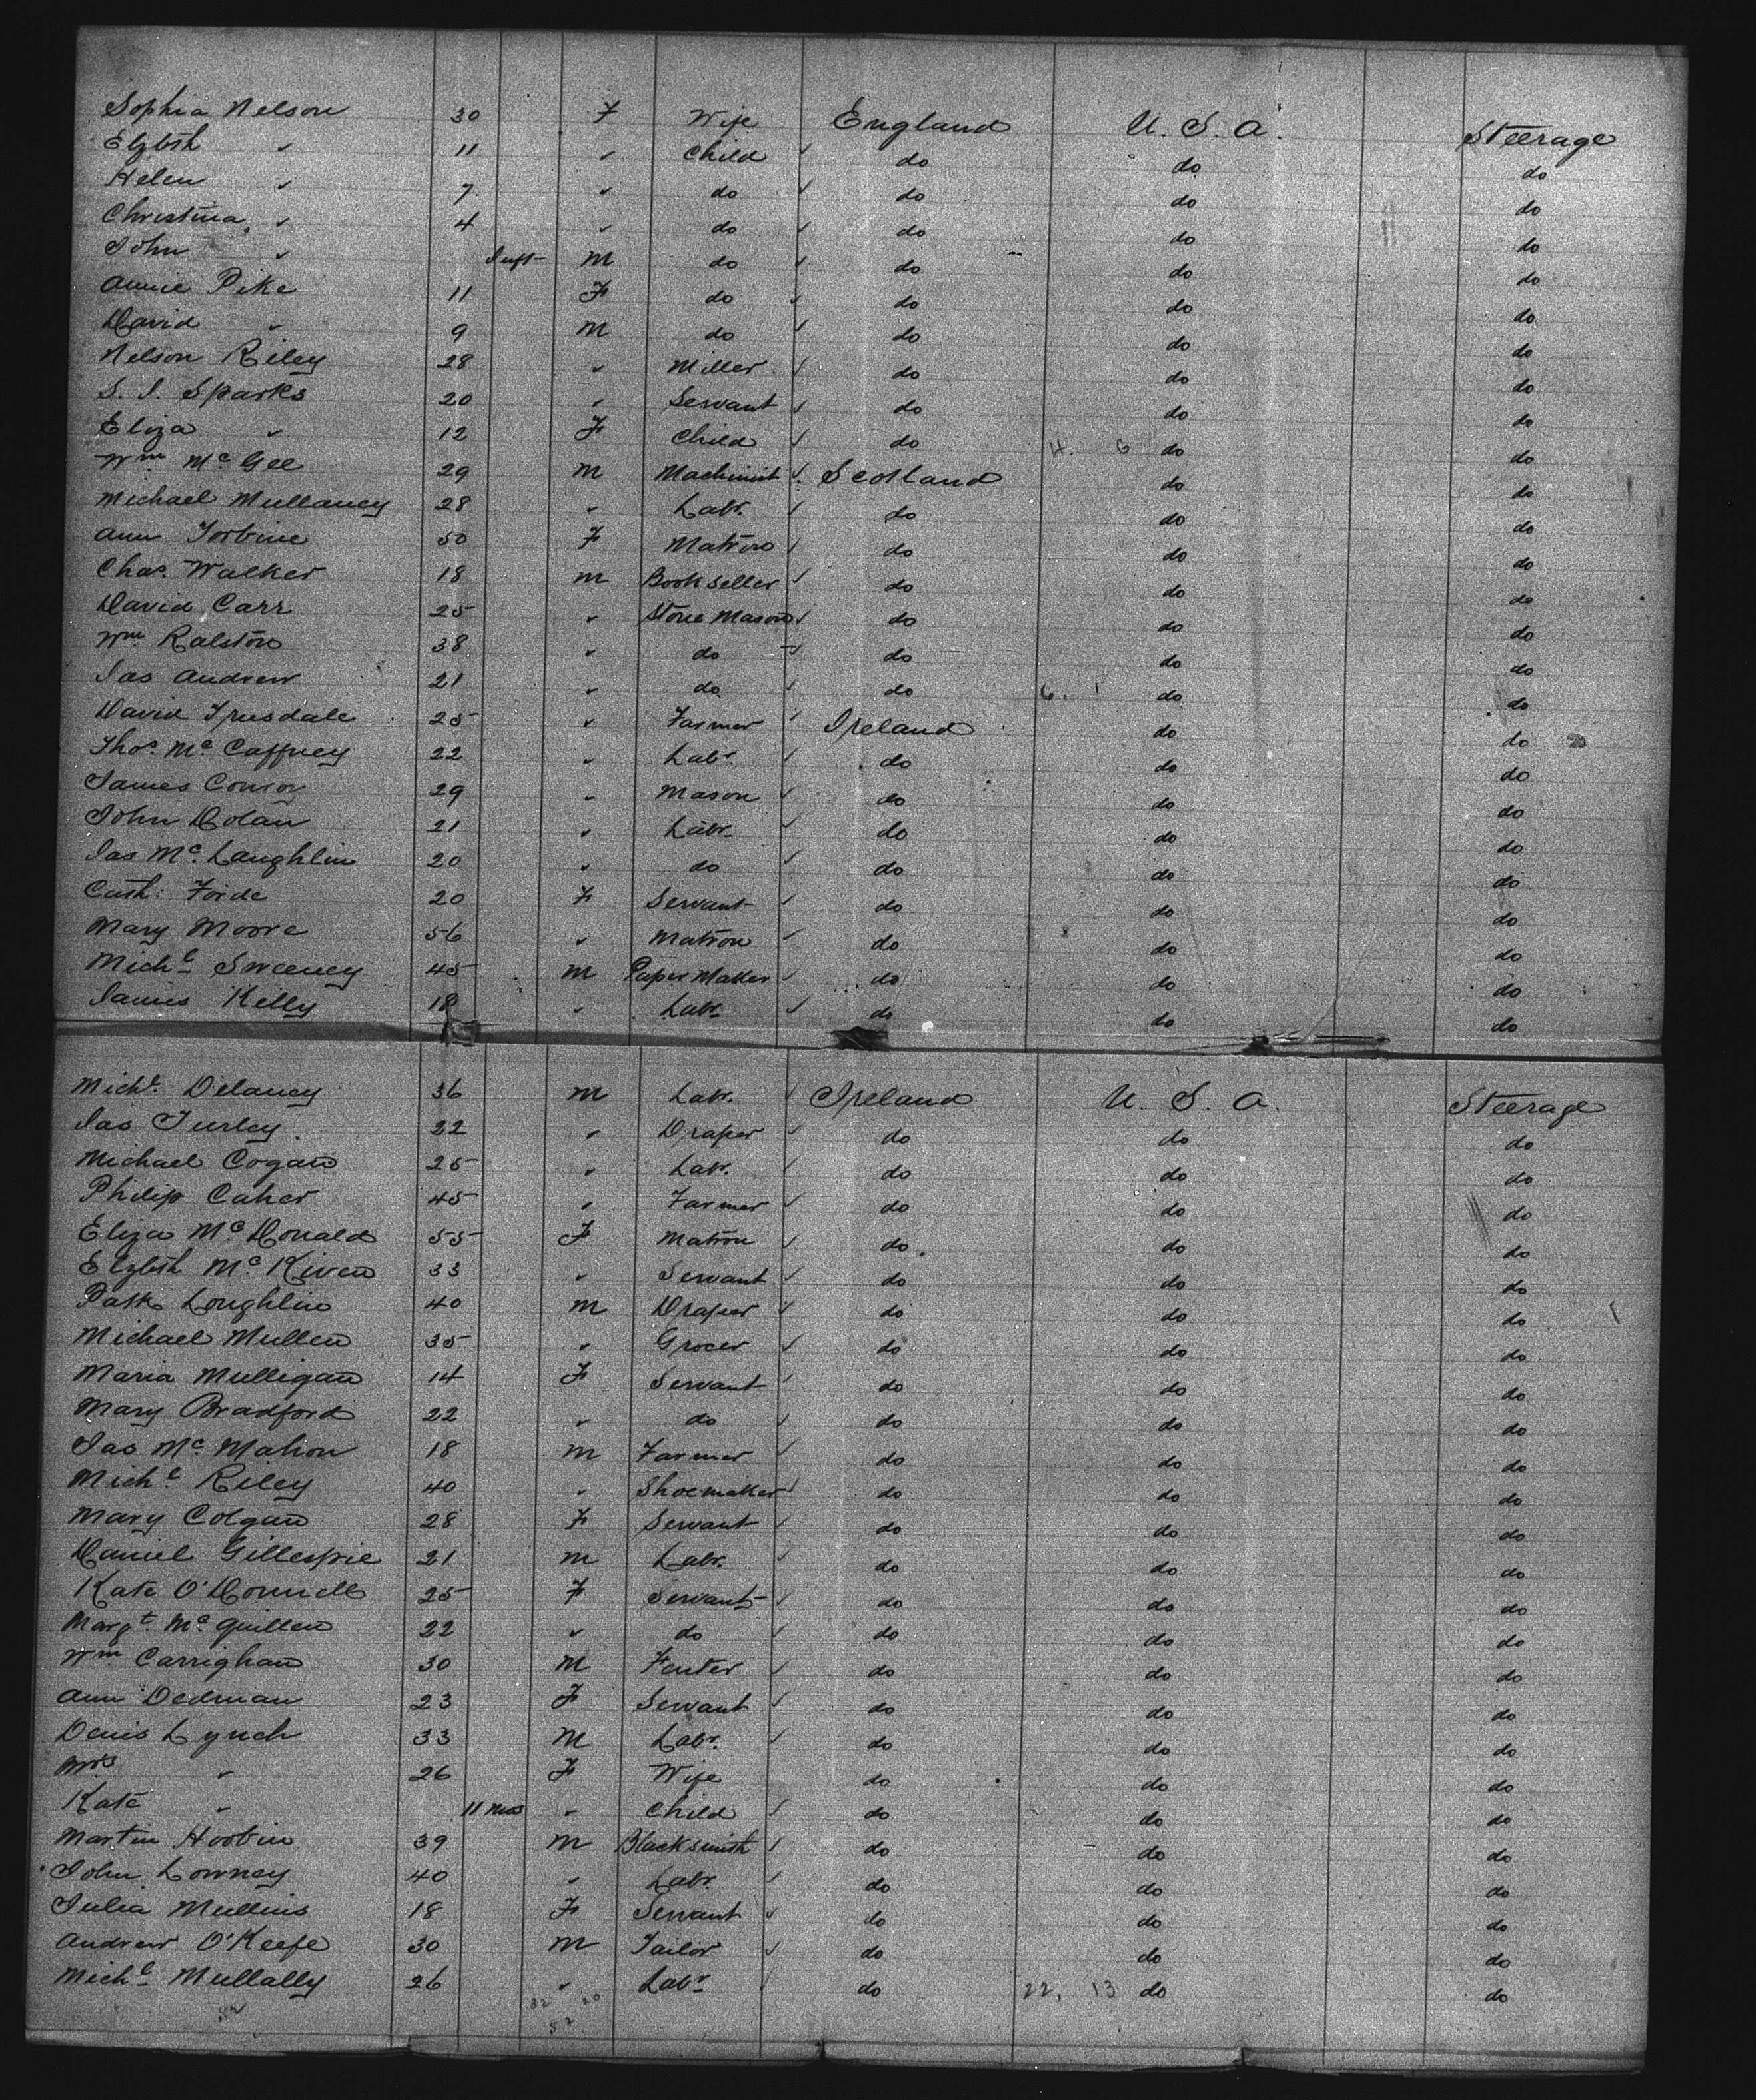 Sophia Nelson 30 F Wife England U. S. A. Steerage
Elzbth " 11 " Child do do do
Helen " 7 " do do do do
Christina " 4 " do do do do
John " Inft M do do do do
Annie Pike 11 F do do do do
David " 9 M do do do do
Nelson Riley 28 " Miller do do do
S. J. Sparks 20 " Servant do do do
Eliza " 12 F Child do 4. 6 do do
Wm McGee 29 M Machinist Scotland do do
Michael Mullaney 28 " Labr. do do do
Ann Torbine 50 F Matron do do do
Chas. Walker 18 M Bookseller do do do
David Carr 25 " Stone Mason do do do
Wm Ralston 38 " do do do do
Jas Andrew 21 " do do 6. 1 do do
David Trusdale 25 " Farmer Ireland do do
Thos. McCaffrey 22 " Labr. do do do
James Conroy 29 " Mason do do do
John Dolan 21 " Labr. do do do
Jas McLaughlin 20 " do do do do
Cath: Forde 20 F Servant do do do
Mary Moore 56 " Matron do do do
Michl Sweeney 45 M Paper Maker do do do
James Kelly 18 " Labr. do do do
Michl. Delaney 36 M Labr. Ireland U. S. A. Steerage
Jas Turley 22 " Draper do do do
Michael Cogan 25 " Labr. do do do
Philip Caher 45 " Farmer do do do
Eliza McDonald 55 F Matron do do do
Elzbth McKiven 33 " Servant do do do
Patk Loughlin 40 M Draper do do do
Michael Mullen 35 " Grocer do do do
Maria Mulligan 14 F Servant do do do
Mary Bradford 22 " do do do do
Jas McMahon 18 M Farmer do do do
Michl. Riley 40 " Shoemaker do do do
Mary Colgan 28 F Servant do do do
Daniel Gillespie 21 M Labr. do do do
Kate O'Donnell 25 F Servant do do do
Margt McQuillen 22 " do do do do
Wm Carrighan 30 M do do do
Ann Dedman 23 F Servant do do do
Denis Lynch 33 M Labr. do do do
Mrs " 26 F Wife do do do
Kate " 11 mos " Child do do do
Martin Hoobin 39 M Blacksmith do do do
John Lowney 40 " Labr. do do do
Julia Mullins 18 F Servant do do do
Andrew O'Keefe 30 M Tailor do do do
Michl Mullally 26 " Labr do 22. 13 do do
52 32 20
52